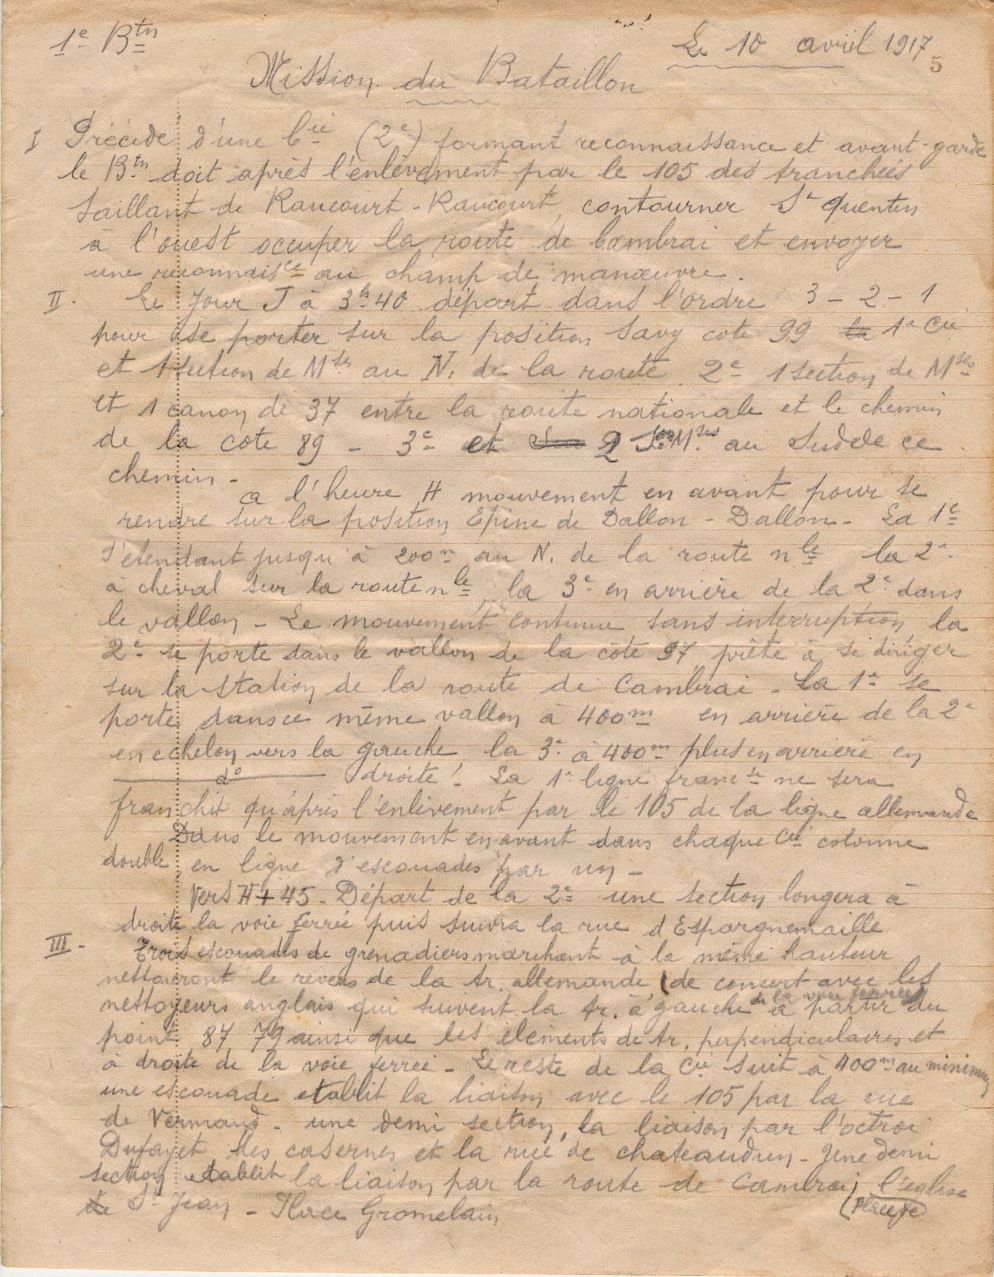 1e Btn
Le 10 avril 1917
5
Mission du Bataillon
I Précédé d'une Cie (2e) formant reconnaissance et avant-garde
le Btn doit après l'enlèvement par le 105 des tranchées
Saillant de Raucourt - Raucourt, contourner St Quentin
à l'ouest occuper la route de Cambrai et envoyer
une reconnaisce au champ de manœuvre.
II. Le Jour J à 3h40 départ dans l'ordre 3-2-1
pour se porter sur la position Savy cote 99 la 1e Cie
et 1 section de Mses au N. de la route 2e 1 section de Mses
et 1 canon de 37 entre la route nationale et le chemin
de la cote 89 - 3e et 2 Ses Mses au Sud de ce
chemin -
a l'heure H mouvement en avant pour se
rendre sur la position Epine de Dallon - Dallon - La 1e
s'étendant jusqu'à 200m au N. de la route nle la 2e
à cheval sur la route nle, la 3e en arrière de la 2e dans
le vallon - Le mouvement continue sans interruption la
2e se porte dans le vallon de la cote 97 prête à se diriger
sur la station de la route de Cambrai - La 1e se
porte dans ce même vallon à 400m en arrière de la 2e
en echelon vers la gauche la 3e à 400m plus en arrière en
do droite! La 1e ligne francse ne sera
franchie qu'après l'enlèvement par le 105 de la ligne allemande
Dans le mouvement en avant dans chaque Cie colonne
double en ligne d'escouades par un -
Vers H+45 - Départ de la 2e une section longera à
droite la voie ferrée puis suivra la rue d'Espargnemaille
III - Trois escouades de grenadiers marchant à la même hauteur
nettoieront le revers de la tr. allemande (de concert avec les
nettoyeurs anglais qui suivent la tr. à gauche de la voie ferrée) à partir du
point 87 79 ainsi que les éléments de tr. perpendiculaires et
à droite de la voie ferrée - Le reste de la Cie suit à 400m au minimum
une escouade etablit la liaison avec le 105 par la rue
de Vermand - une demi section, la liaison par l'octroi
Dufayet les casernes et la rue de chateaudun - Une demi
section etablit la liaison par la route de Cambrai l'église
St Jean - Place Gromelain